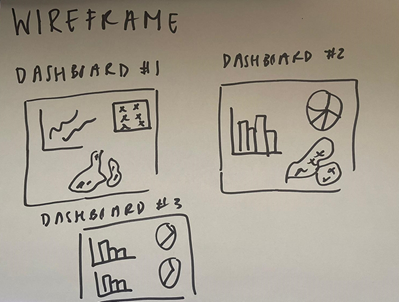 WIREFRAME
DASHBOARD #1
DASHBOARD #2
DASHBOARD #3